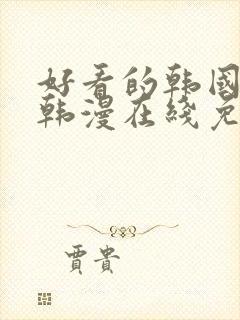 好看的韩国
韩漫在线免
贾贵